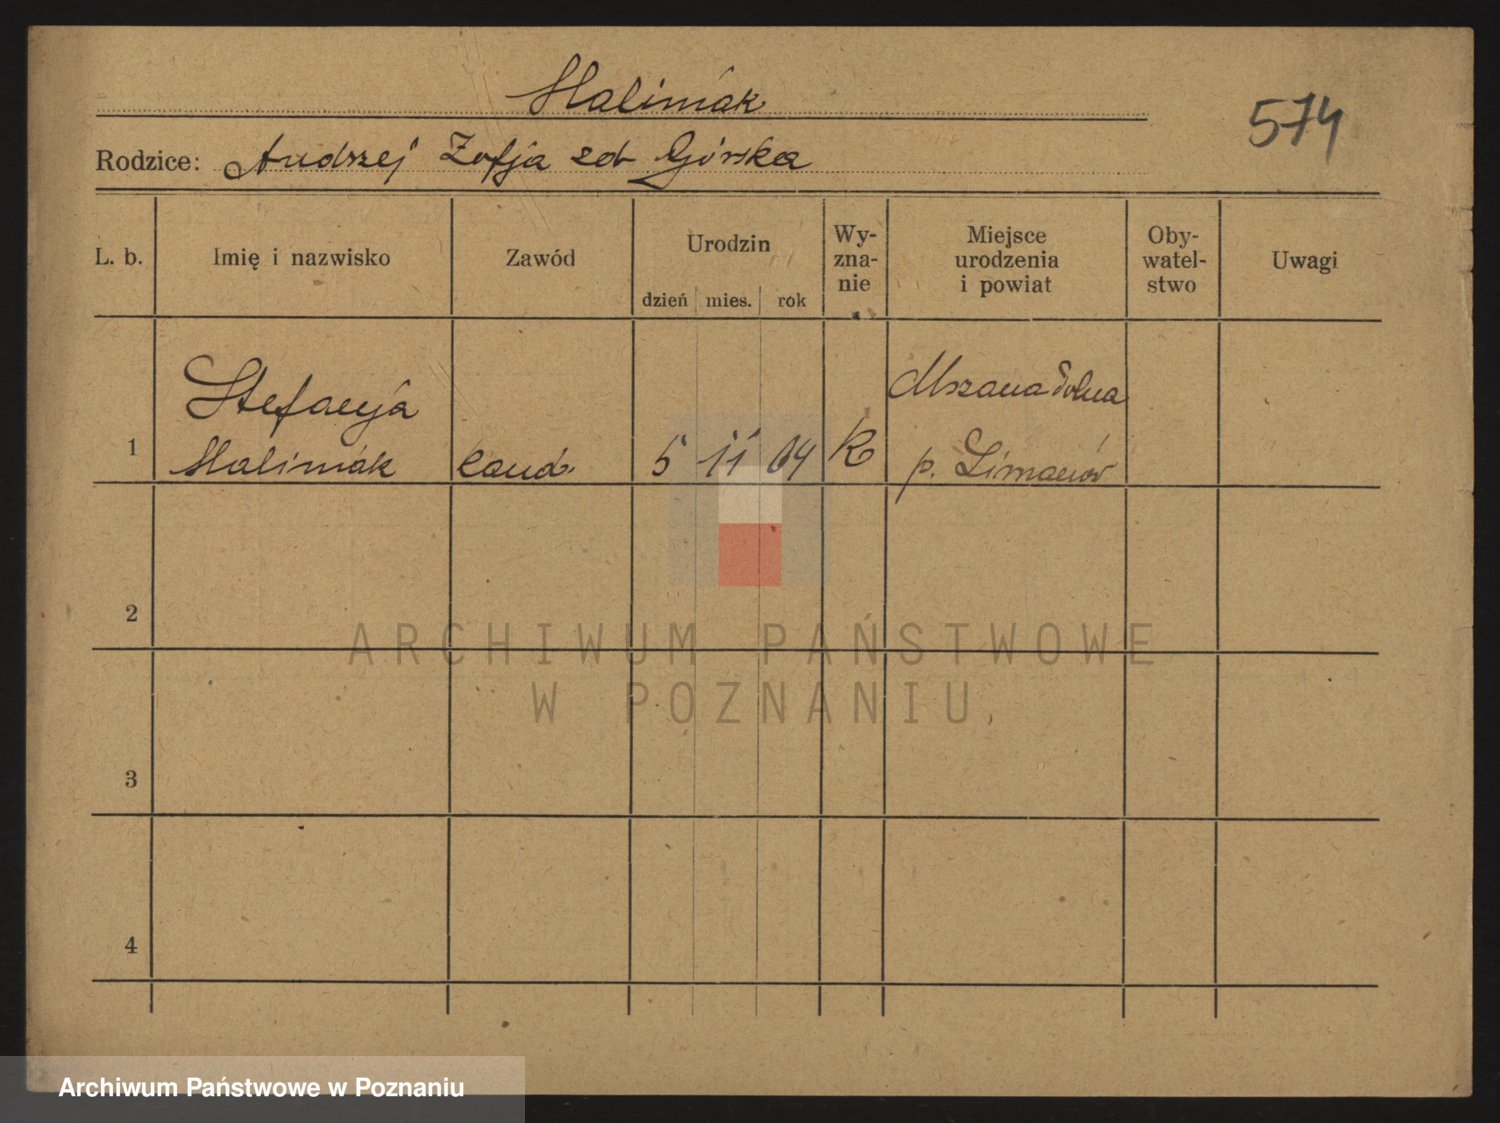 Malimák
574
Rodzice: Andrzej Zofja zd Górska
L. b.
Imię i nazwisko
Zawód
Urodzin
dzień mies. rok
Wy-
zna-
nie
Miejsce
urodzenia
i powiat
Oby-
watel-
stwo
Uwagi
1
Stefanja
Malimák
kand.
5 11 04
k
Mszana Dolna
p. Limanów
2
3
4
ARCHIWUM PAŃSTWOWE
W POZNANIU
Archiwum Państwowe w Poznaniu